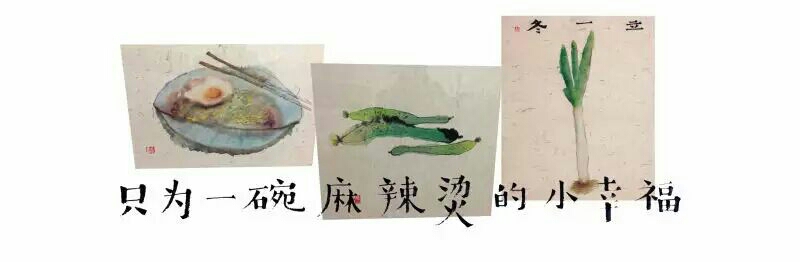 立一冬
只为一碗麻辣烫的小幸福